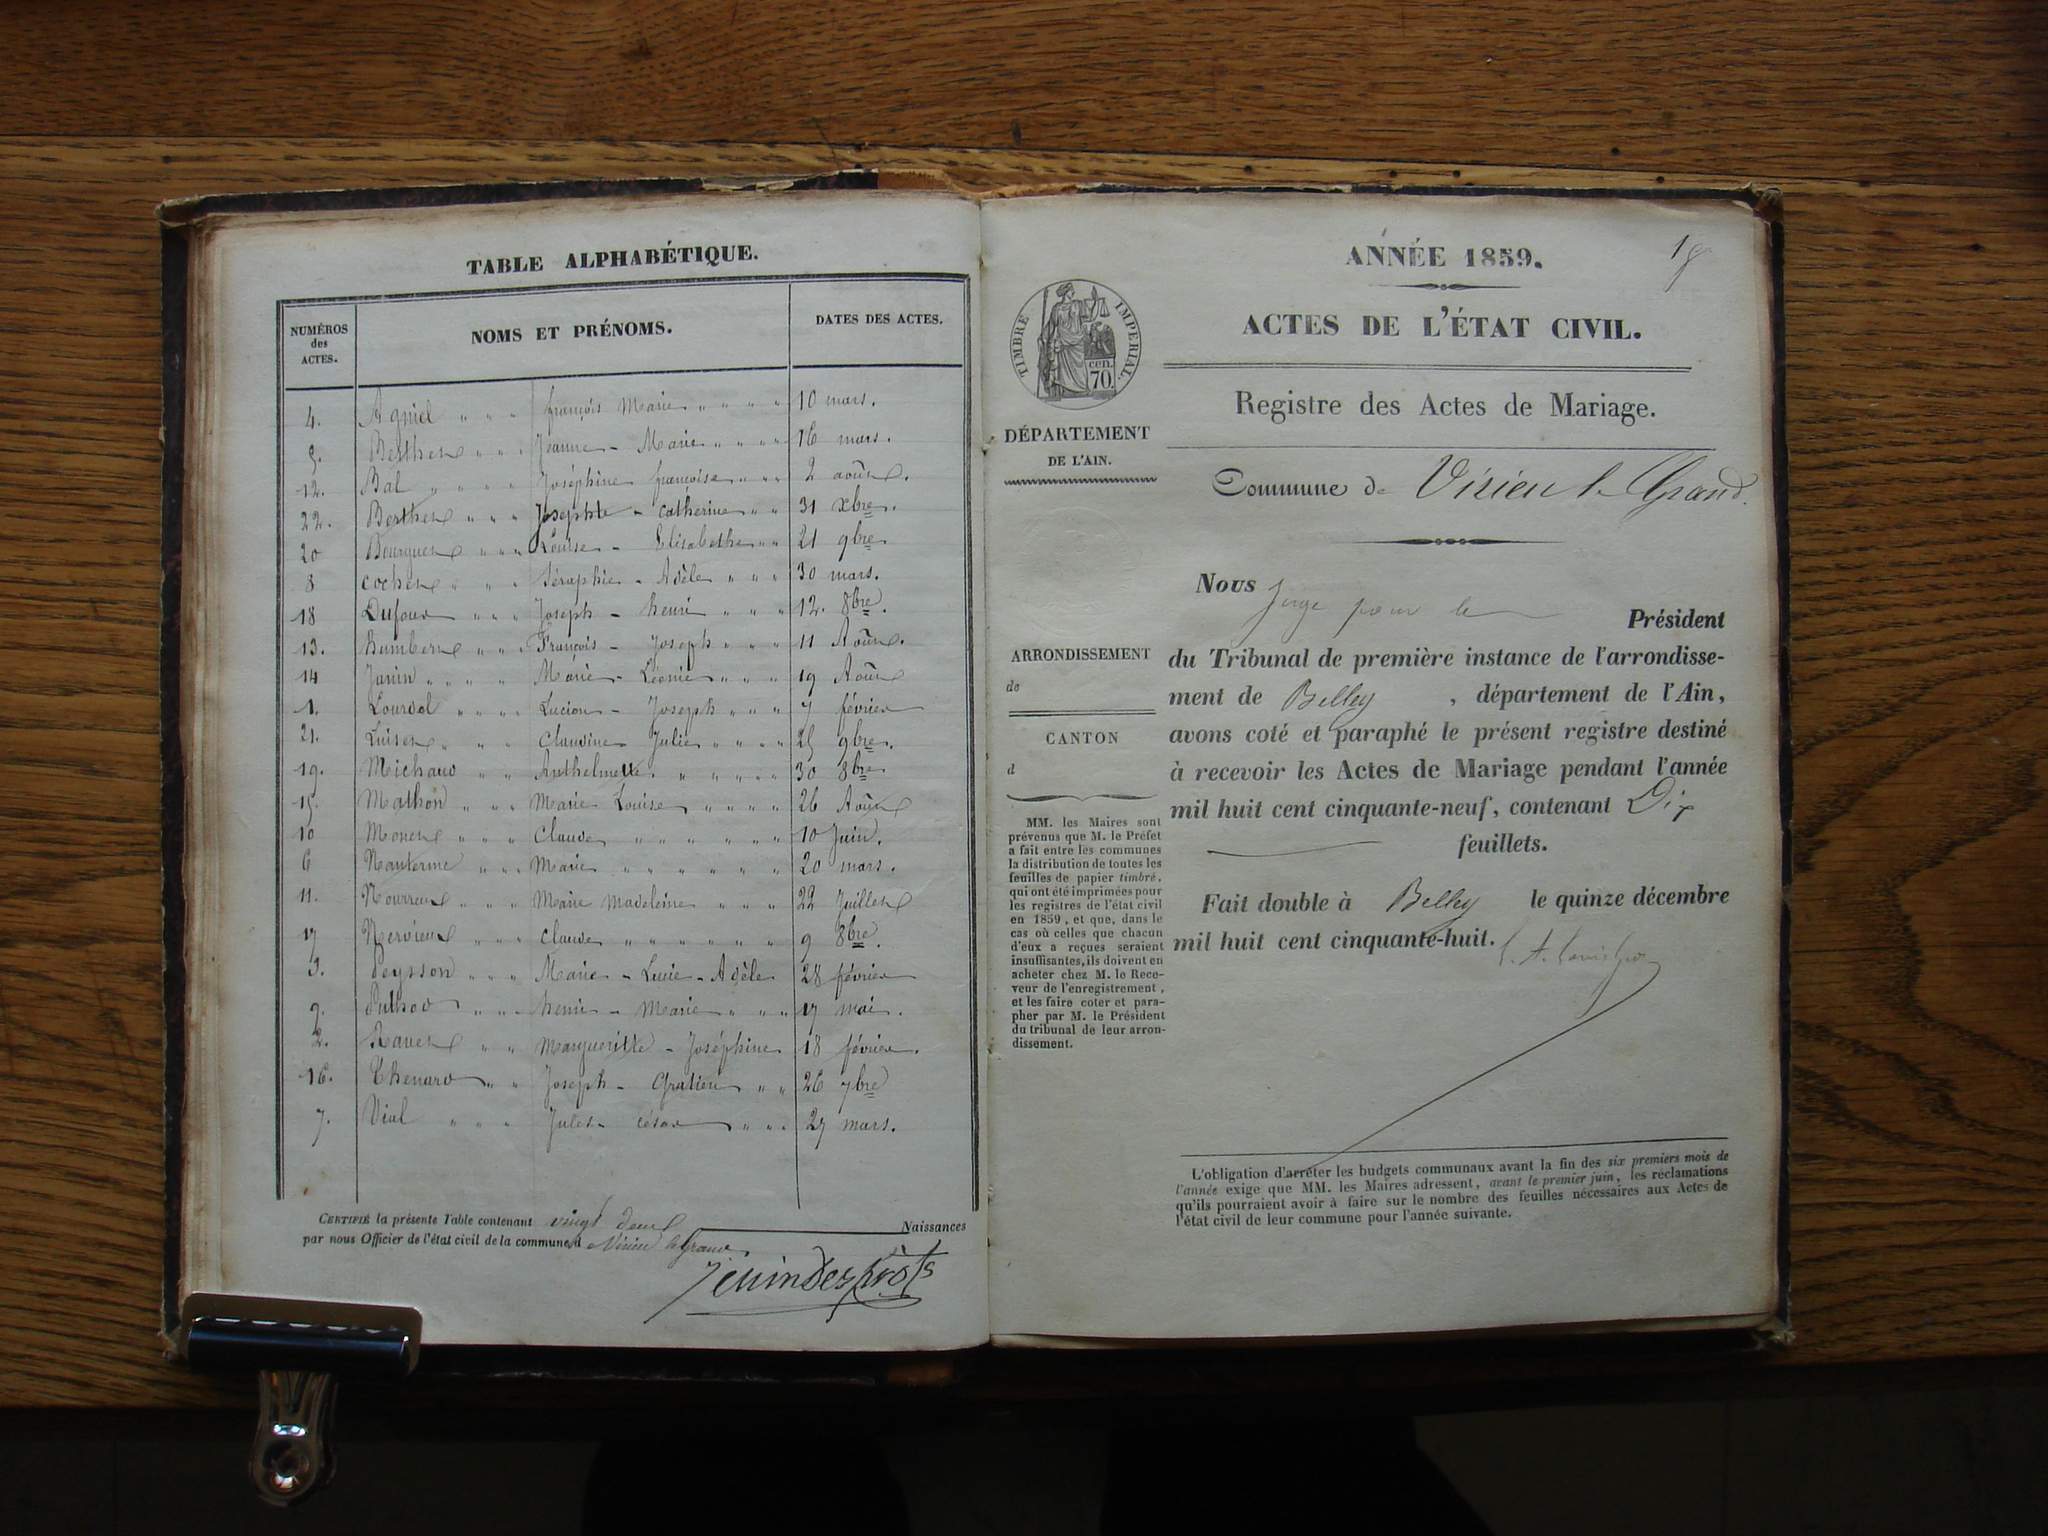 TABLE ALPHABÉTIQUE.
NUMÉROS
des
ACTES.
NOMS ET PRÉNOMS.
DATES DES ACTES.
4. Agniel " " " françois Marie " " " " 10 mars.
5. Berthet " " " Jeanne - Marie " " " " 16 mars.
12. Bal " " " " Joséphine françoise " " " 2 août.
22. Berthet " " " Josephte - Catherine " " 31 xbre.
20 Bourguet " " " Louise - Elisabethe " " 21 9bre
8 Cochet " " " Séraphie - Adèle " " " 30 mars.
18 Dufour " " " Joseph - henri " " " " 12. 8bre.
13. Humbert " " " François - Joseph " " " 11 Août.
14 Janin " " " " Marie - Léonie " " " " 19 Août
1. Lourdel " " " " Lucien - Joseph " " " 7 février
21. Luiset " " " Claudine Julie " " " " 25 9bre.
19. Michaud " " Anthelmette. " " " " " " 30 8bre
15. Mathon " " " Marie Louise " " " " 26 Août
10 Monet " " " " Claude " " " " " " 10 Juin.
6 Nanterme " " " Marie " " " " " " " 20 mars.
11. Marie Madeleine " " " 22 Juillet
17 Nervieux " " " Claude " " " " " " " 9 8bre.
3. Peysson " " " Marie - Lucie - Adèle 28 février
9. Puthod " " " henri - Marie " " " " 17 mai.
2. Ravet " " Margueritte - Joséphine 18 février.
16. Thenard " " Joseph - Gratien " " " 26 7bre
7. Vial " " " Jules - César " " " 27 mars.
CERTIFIÉ la présente Table contenant vingt deux Naissances
par nous Officier de l'état civil de la commune d Virieu le Grand
18
ANNÉE 1859.
ACTES DE L'ÉTAT CIVIL.
Registre des Actes de Mariage.
Commune de Virieu le Grand.
TIMBRE IMPERIAL.
70. cen.
DÉPARTEMENT
DE L'AIN.
ARRONDISSEMENT
de
CANTON
d
MM. les Maires sont
prévenus que M. le Préfet
a fait entre les communes
la distribution de toutes les
feuilles de papier timbré,
qui ont été imprimées pour
les registres de l'état civil
en 1859, et que, dans le
cas où celles que chacun
d'eux a reçues seraient
insuffisantes, ils doivent en
acheter chez M. le Rece-
veur de l'enregistrement,
et les faire coter et para-
pher par M. le Président
du tribunal de leur arron-
dissement.
Nous Juge pour le Président
du Tribunal de première instance de l'arrondisse-
ment de Belley, département de l'Ain,
avons coté et paraphé le présent registre destiné
à recevoir les Actes de Mariage pendant l'année
mil huit cent cinquante-neuf, contenant Dix
feuillets.
Fait double à Belley le quinze décembre
mil huit cent cinquante-huit.
L'obligation d'arrêter les budgets communaux avant la fin des six premiers mois de
l'année exige que MM. les Maires adressent, avant le premier juin, les réclamations
qu'ils pourraient avoir à faire sur le nombre des feuilles nécessaires aux Actes de
l'état civil de leur commune pour l'année suivante.